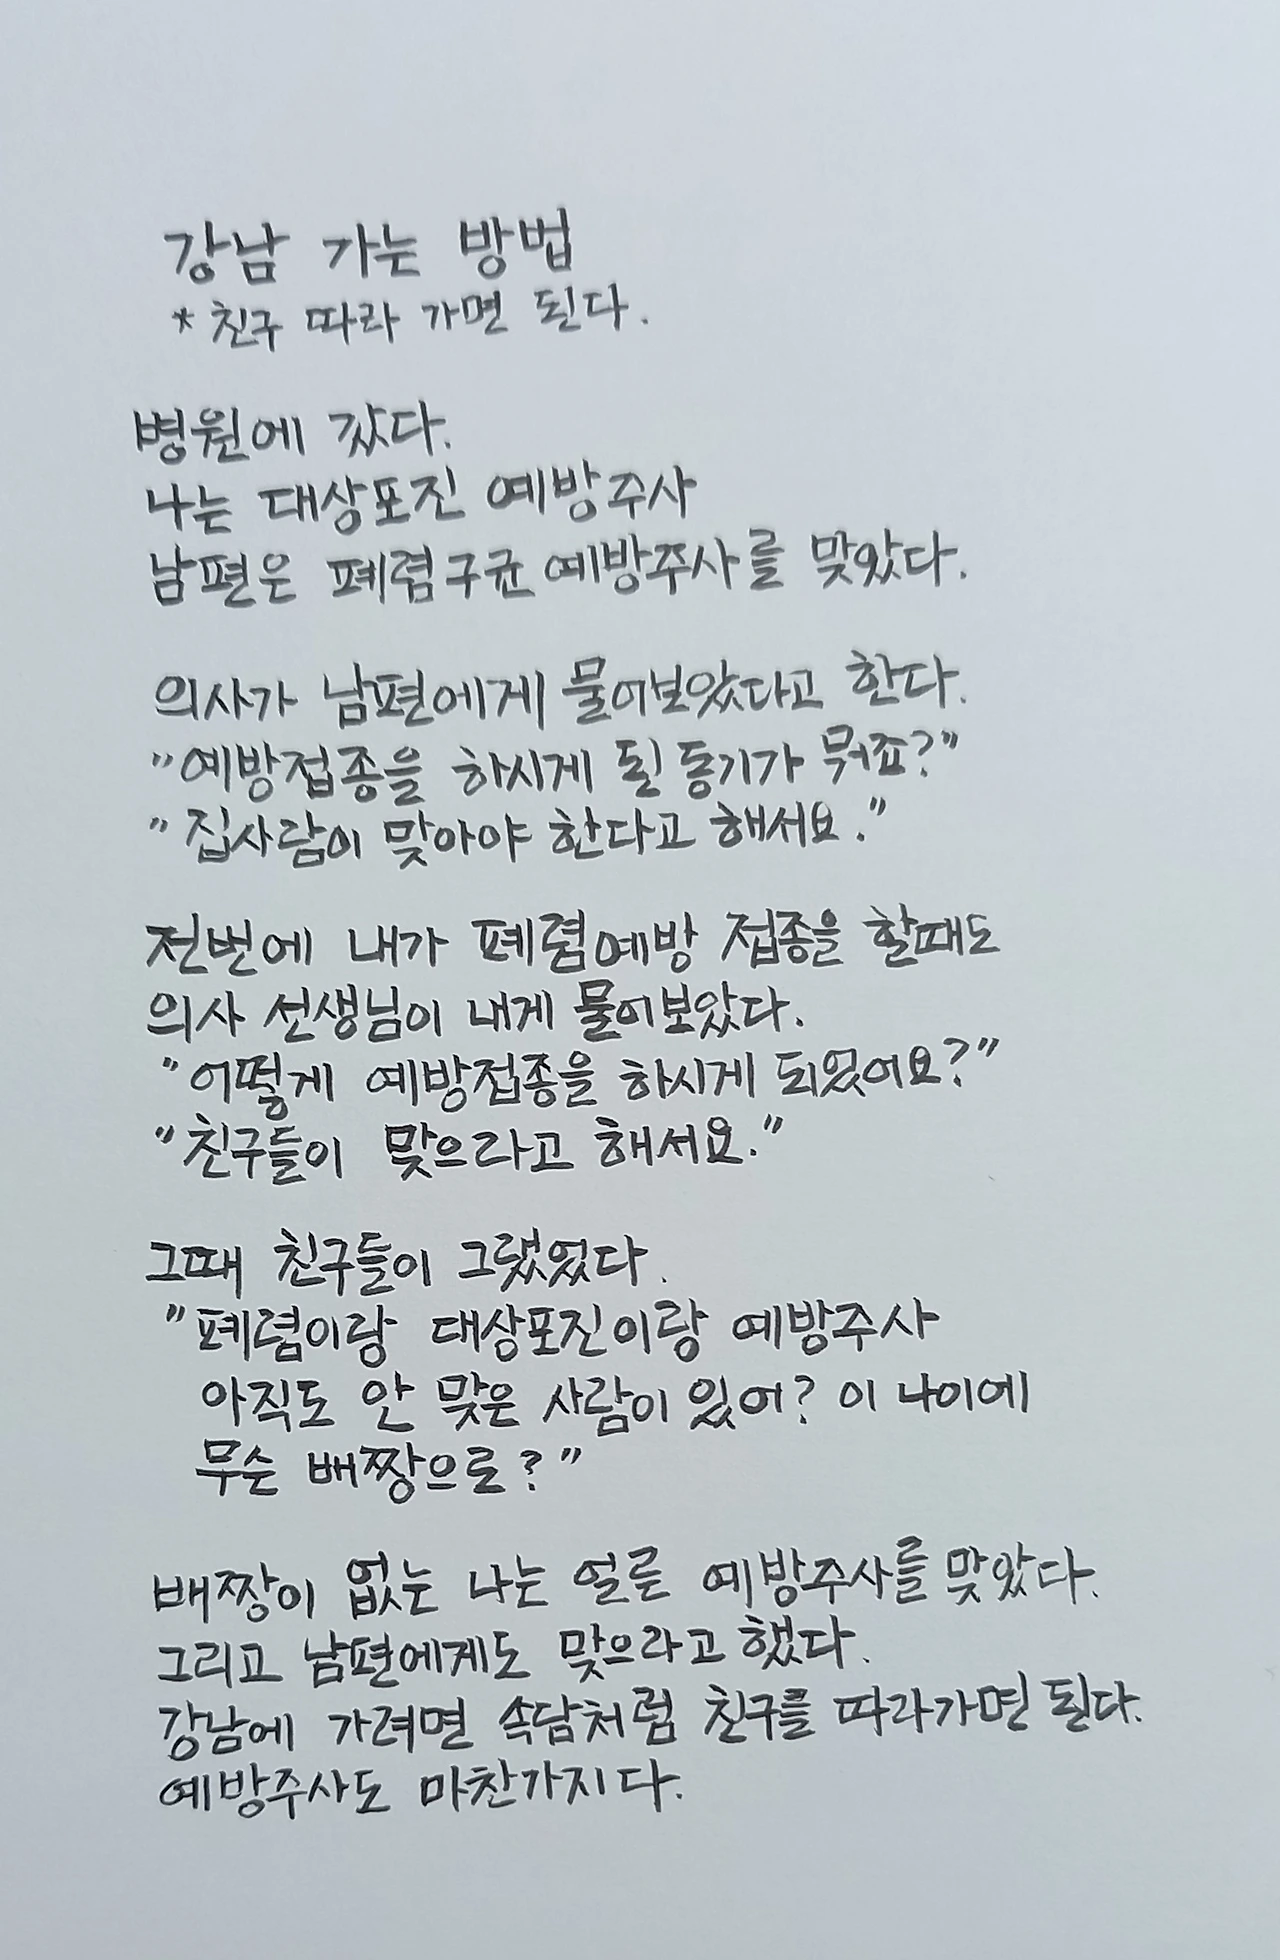 강남 가는 방법
* 친구 따라 가면 된다.
병원에 갔다.
나는 대상포진 예방주사
남편은 폐렴구균 예방주사를 맞았다.
의사가 남편에게 물어보았다고 한다.
"예방접종을 하시게 된 동기가 뭐죠?"
"집사람이 맞아야 한다고 해서요."
전번에 내가 폐렴예방 접종을 할때도
의사 선생님이 내게 물어보았다.
"어떻게 예방접종을 하시게 되었어요?"
"친구들이 맞으라고 해서요."
그때 친구들이 그랬었다.
"폐렴이랑 대상포진이랑 예방주사
아직도 안 맞은 사람이 있어? 이 나이에
무슨 배짱으로?"
배짱이 없는 나는 얼른 예방주사를 맞았다.
그리고 남편에게도 맞으라고 했다.
강남에 가려면 속담처럼 친구를 따라가면 된다.
예방주사도 마찬가지다.